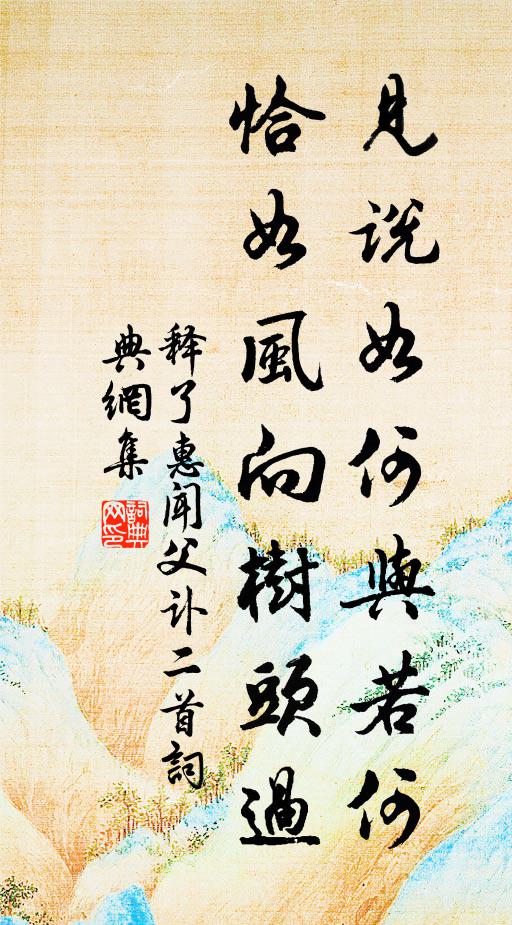 見説如何與若何
恰如風向樹頭過
释了惠聞父訃二首詞
典網集
詞典
网印